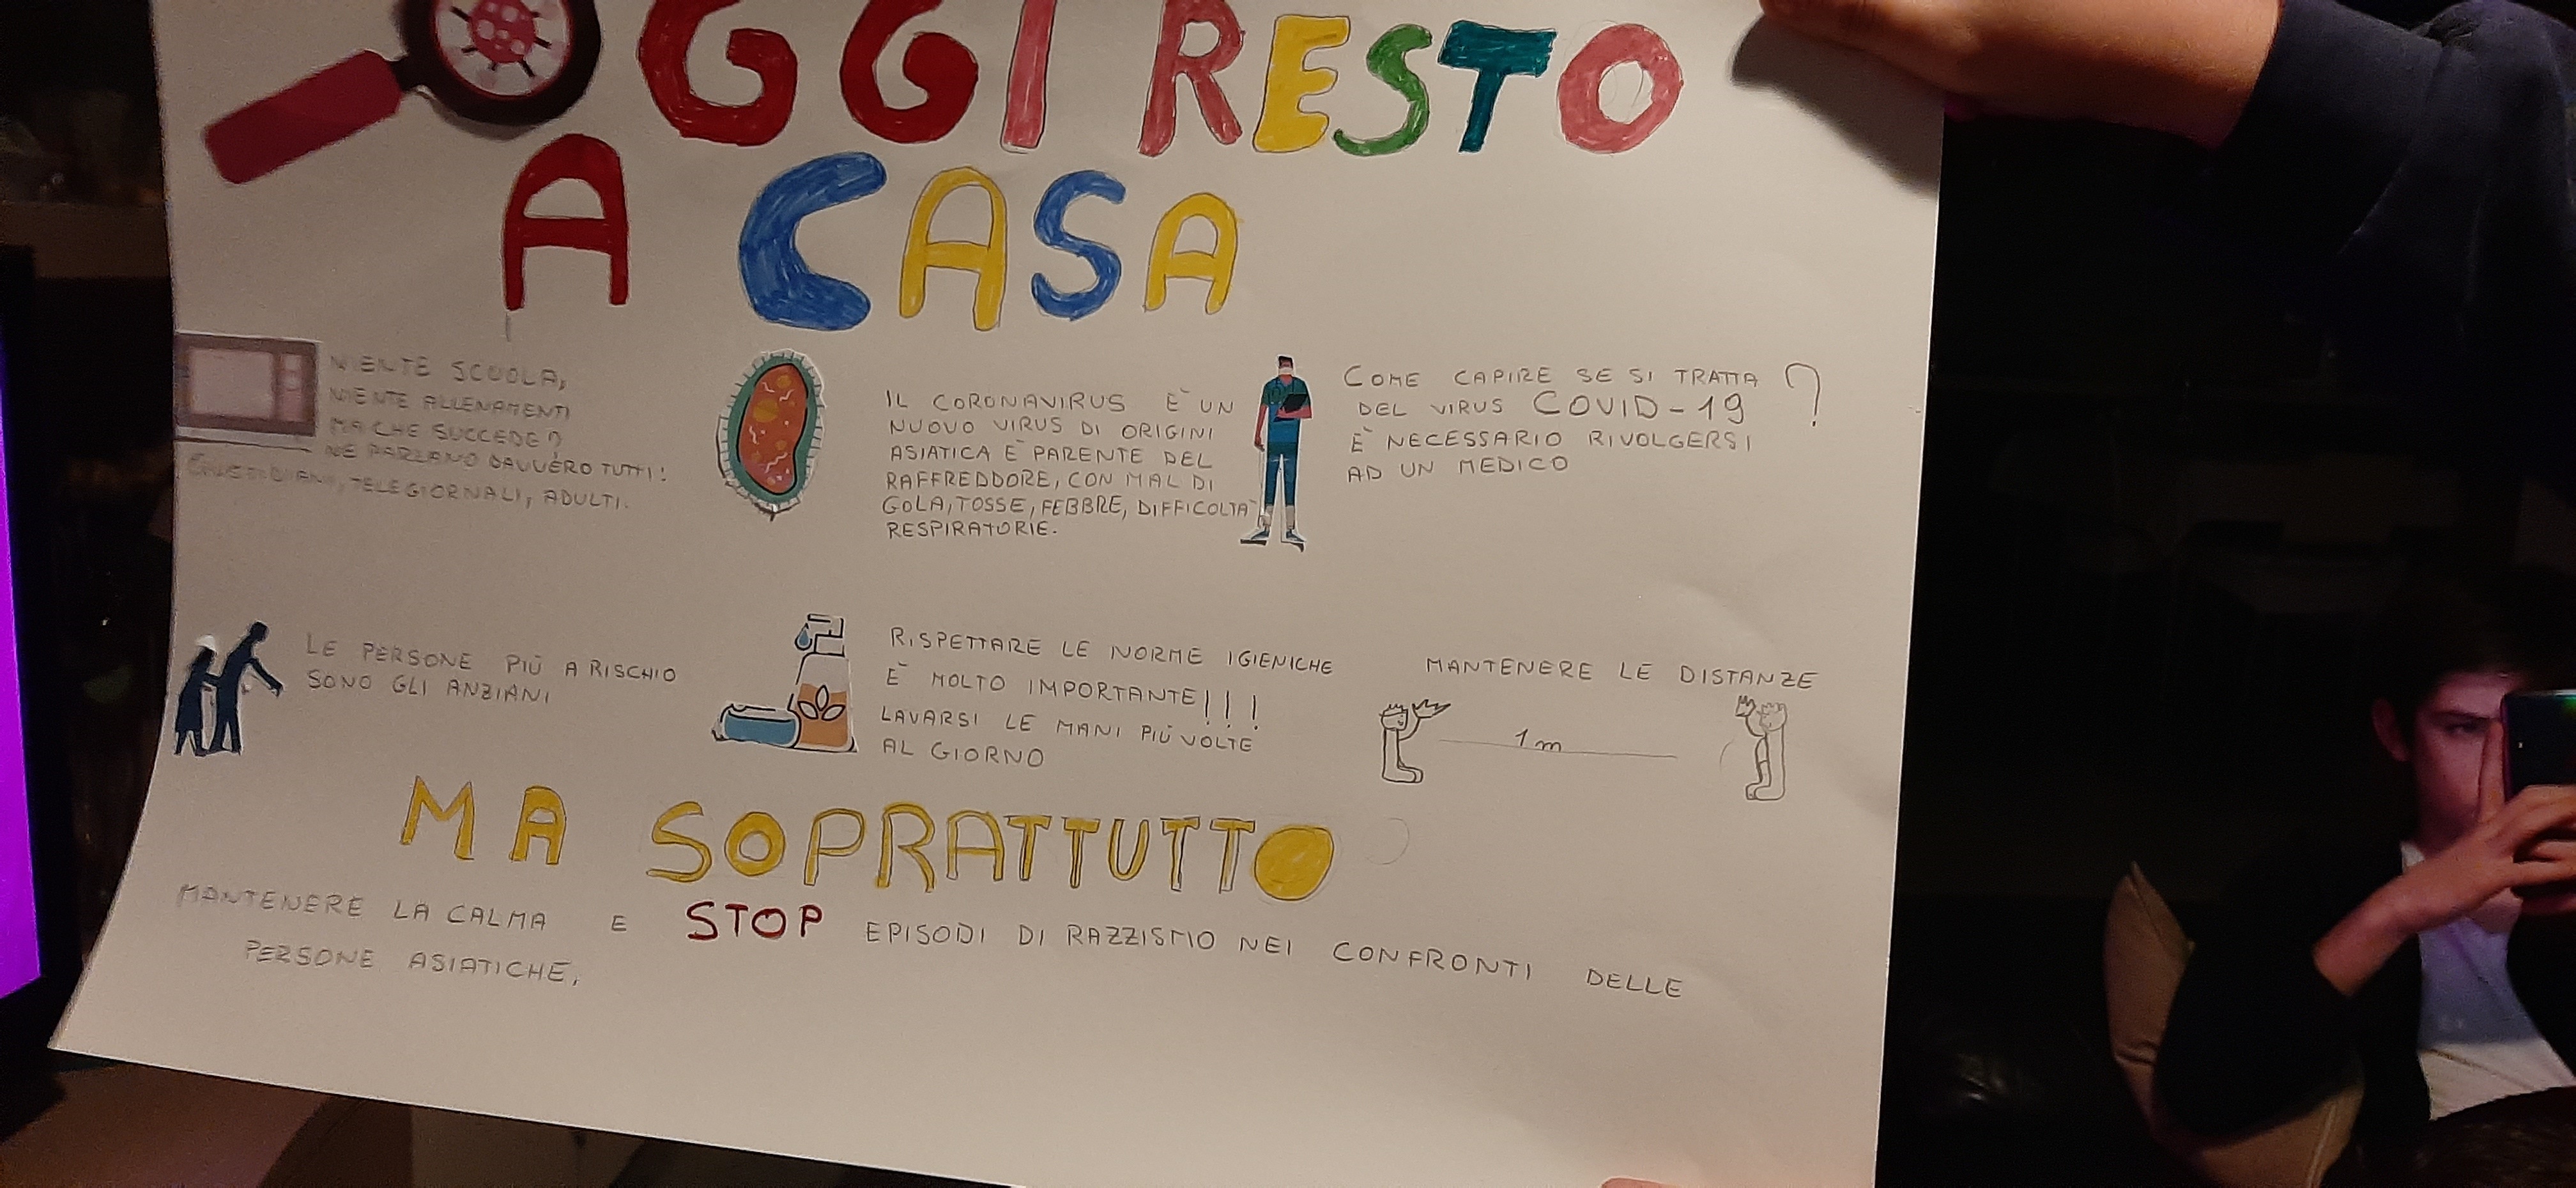 OGGI RESTO
A CASA
NIENTE SCUOLA,
NIENTE ALLENAMENTI
MA CHE SUCCEDE?
NE PARLANO DAVVERO TUTTI!
TELEGIORNALI, ADULTI.
IL CORONAVIRUS È UN
NUOVO VIRUS DI ORIGINI
ASIATICA È PARENTE DEL
RAFFREDDORE, CON MAL DI
GOLA, TOSSE, FEBBRE, DIFFICOLTÀ
RESPIRATORIE.
COME CAPIRE SE SI TRATTA
DEL VIRUS COVID-19 ?
È NECESSARIO RIVOLGERSI
AD UN MEDICO
LE PERSONE PIÙ A RISCHIO
SONO GLI ANZIANI
RISPETTARE LE NORME IGIENICHE
È MOLTO IMPORTANTE!!!
LAVARSI LE MANI PIÙ VOLTE
AL GIORNO
MANTENERE LE DISTANZE
1 m
MA SOPRATTUTTO
MANTENERE LA CALMA E STOP EPISODI DI RAZZISMO NEI CONFRONTI DELLE
PERSONE ASIATICHE,